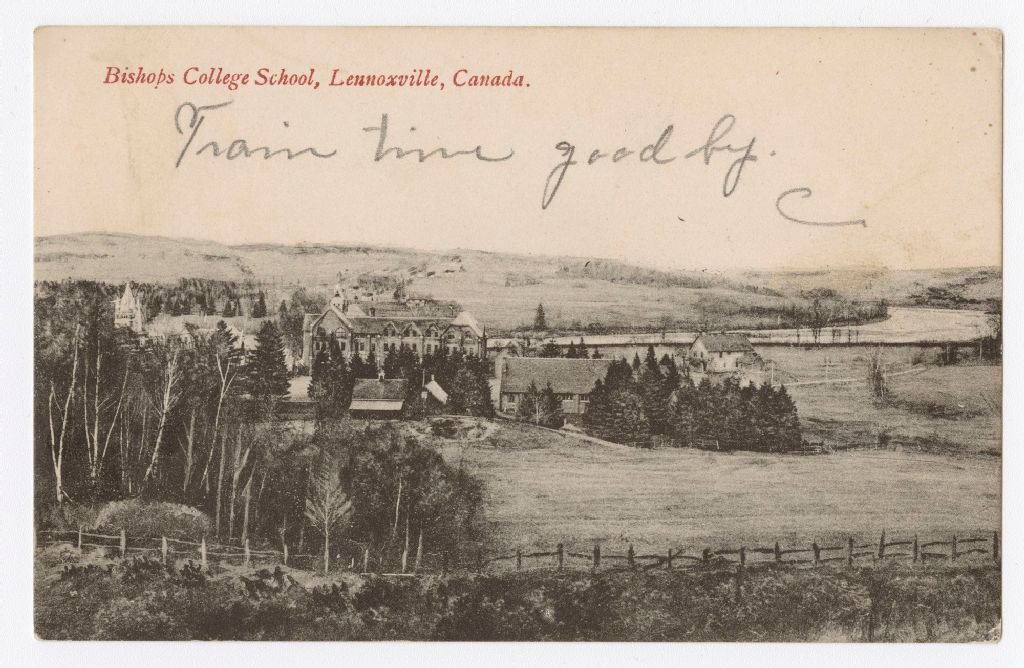 Bishops College School, Lennoxville, Canada.
Train time good by.
C